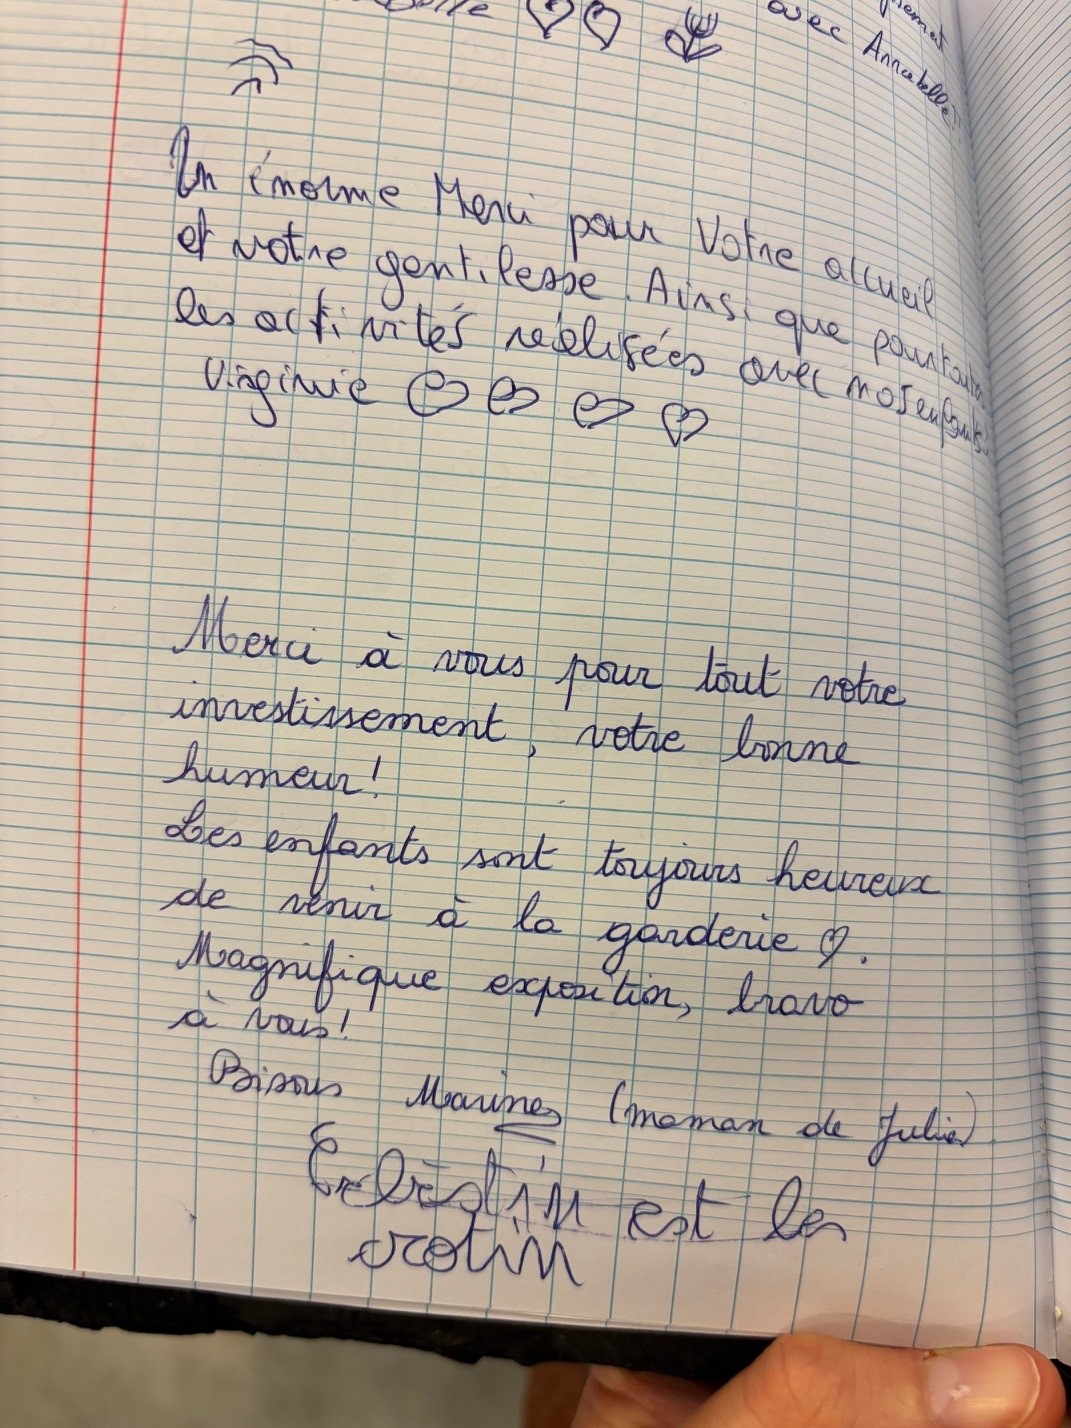 avec Annabelle
Un énorme Merci pour Votre accueil
et votre gentilesse. Ainsi que pour toutes
les activités réalisées avec nos enfants!
Virginie
Merci à vous pour tout votre
investissement, votre bonne
humeur!
Les enfants sont toujours heureux
de venir à la garderie ♡.
Magnifique exposition, bravo
à vous!
Bisous Marine (maman de Julia)
est